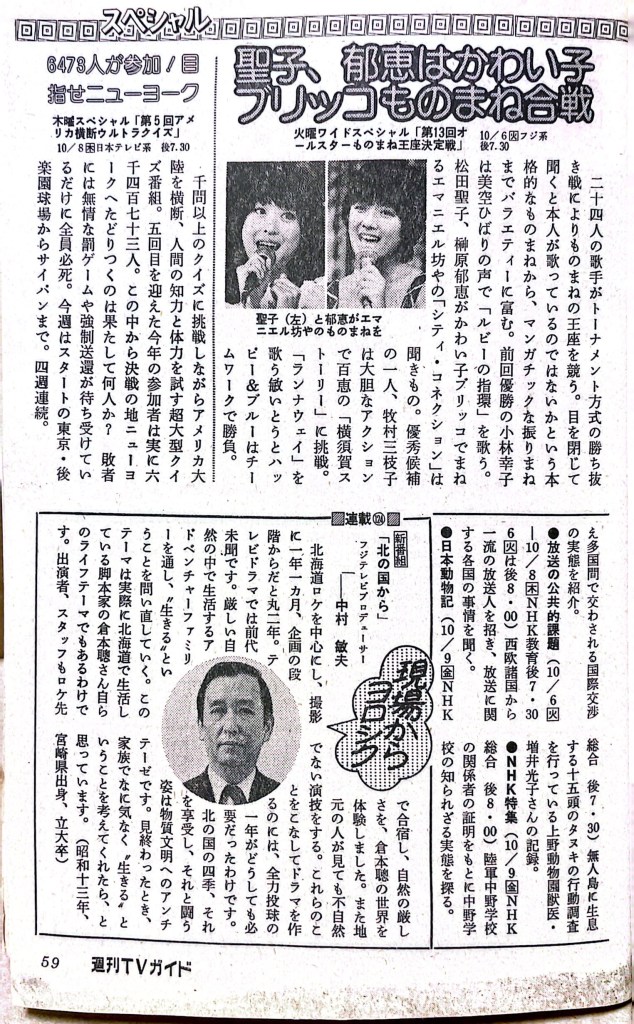 スペシャル
聖子、郁恵はかわい子
ブリッコものまね合戦
火曜ワイドスペシャル「第13回オ
ールスターものまね王座決定戦」
10/6㊋フジ系
後7.30
二十四人の歌手がトーナメント方式の勝ち抜
き戦によりものまねの王座を競う。目を閉じて
聞くと本人が歌っているのではないかという本
格的なものまねから、マンガチックな振りまね
までバラエティーに富む。前回優勝の小林幸子
は美空ひばりの声で「ルビーの指環」を歌う。
松田聖子、榊原郁恵がかわい子ブリッコでまね
るエマニエル坊やの「シティ・コネクション」は
聞きもの。優秀候補
の一人、牧村三枝子
は大胆なアクション
で百恵の「横須賀ス
トーリー」に挑戦。
「ランナウェイ」を
歌う敏いとうとハッ
ピー&ブルーはチー
ムワークで勝負。
聖子(左)と郁恵がエマ
ニエル坊やのものまねを
6473人が参加/目
指せニューヨーク
木曜スペシャル「第5回アメ
リカ横断ウルトラクイズ」
10/8㊍日本テレビ系 後7.30
千問以上のクイズに挑戦しながらアメリカ大
陸を横断、人間の知力と体力を試す超大型クイ
ズ番組。五回目を迎えた今年の参加者は実に六
千四百七十三人。この中から決戦の地ニューヨ
ークへたどりつくのは果たして何人か? 敗者
には無情な罰ゲームや強制送還が待ち受けてい
るだけに全員必死。今週はスタートの東京・後
楽園球場からサイパンまで。四週連続。
え多国間で交わされる国際交渉
の実態を紹介。
●放送の公共的課題(10/6㊋
—10/8㊍NHK教育後7・30
6㊋は後8・00)西欧諸国から
一流の放送人を招き、放送に関
する各国の事情を聞く。
●日本動物記(10/9㊎NHK
総合 後7・30)無人島に生息
する十五頭のタヌキの行動調査
を行っている上野動物園獣医・
増井光子さんの記録。
●NHK特集(10/9㊎NHK
総合 後8・00)陸軍中野学校
の関係者の証明をもとに中野学
校の知られざる実態を探る。
連載(124)
現場から
ヨロシク
新番組
「北の国から」
フジテレビプロデューサー
——中村 敏夫
北海道ロケを中心にし、撮影
に一年一カ月、企画の段
階からだと丸二年。テ
レビドラマでは前代
未聞です。厳しい自
然の中で生活するア
ドベンチャーファミリ
ーを通し、〝生きる〟とい
うことを問い直していく。この
テーマは実際に北海道で生活し
ている脚本家の倉本聰さん自ら
のライフテーマでもあるわけで
す。出演者、スタッフもロケ先
で合宿し、自然の厳し
さを、倉本聰の世界を
体験しました。また地
元の人が見ても不自然
でない演技をする。これらのこ
とをこなしてドラマを作
るのには、全力投球の
一年がどうしても必
要だったわけです。
北の国の四季、それ
を享受し、それと闘う
姿は物質文明へのアンチ
テーゼです。見終わったとき、
家族でなに気なく〝生きる〟と
いうことを考えてくれたら、と
思っています。(昭和十三年、
宮崎県出身、立大卒)
59 週刊TVガイド